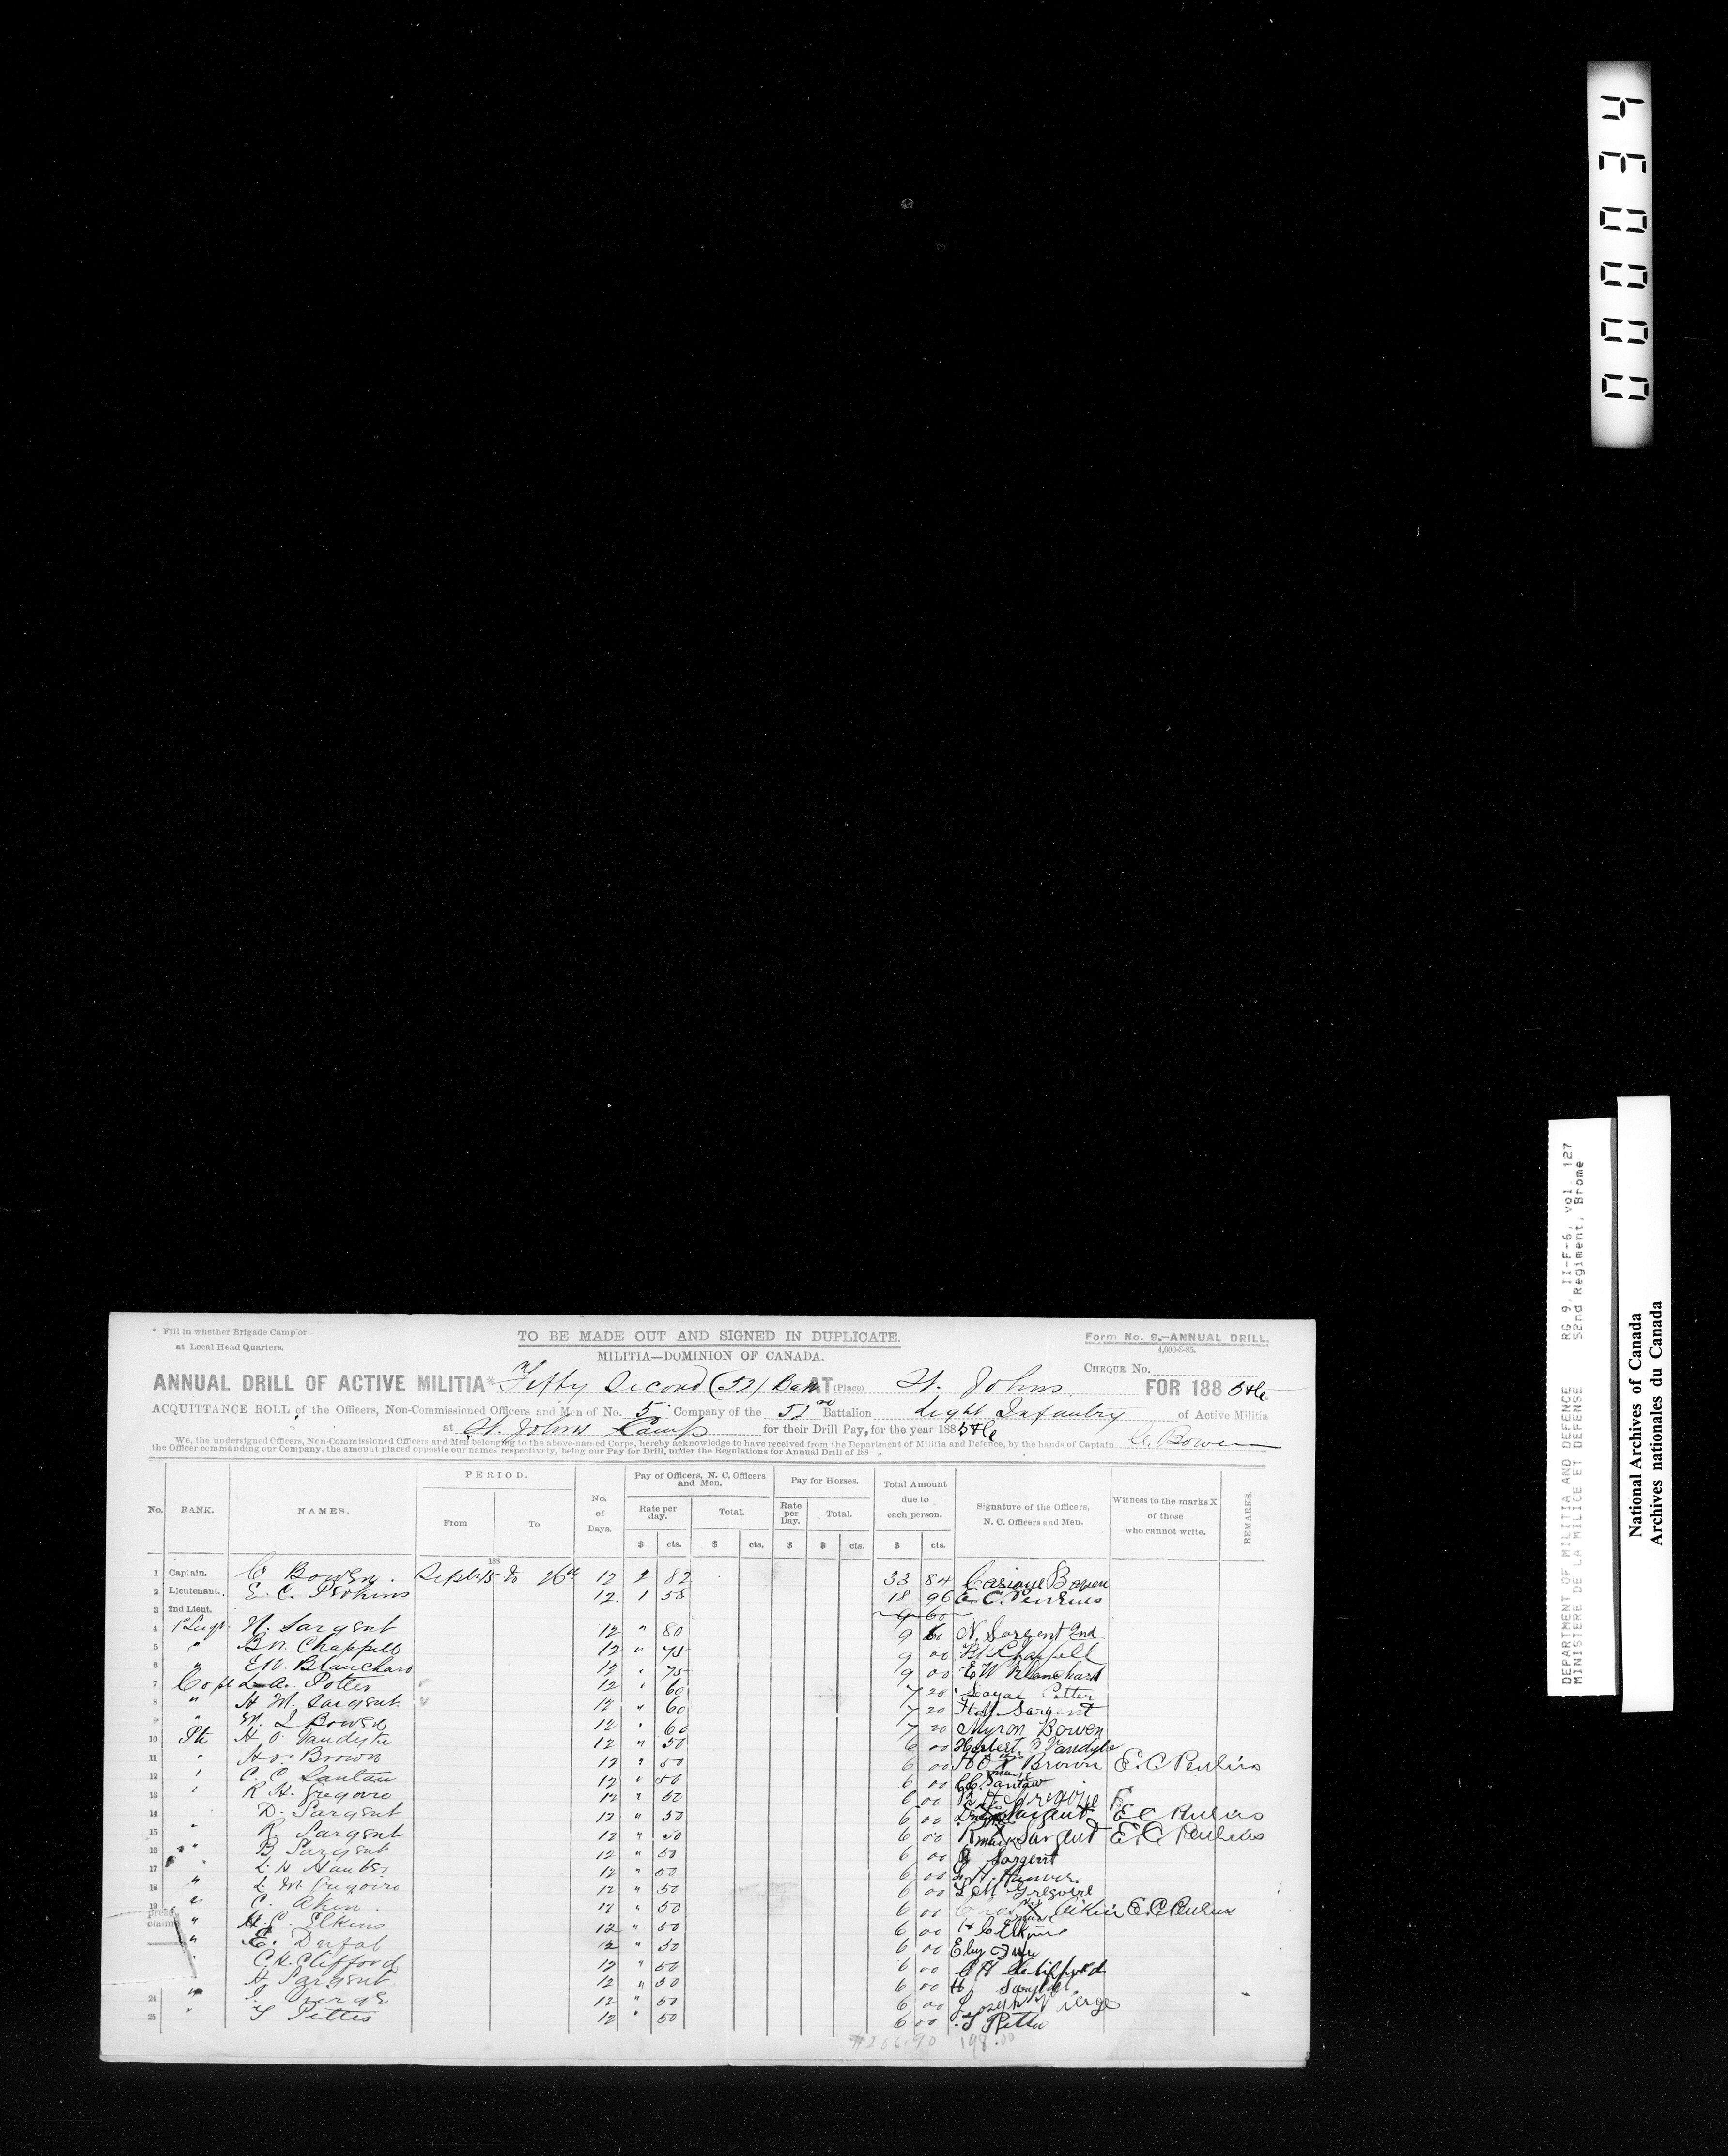 000034
* Fill in whether Brigade Camp or
at Local Head Quarters.
TO BE MADE OUT AND SIGNED IN DUPLICATE.
Form No. 9.—ANNUAL DRILL.
4,000-8-85.
MILITIA—DOMINION OF CANADA.
CHEQUE No.
ANNUAL DRILL OF ACTIVE MILITIA* Fifty Second (52) Batt AT (Place) St. Johns FOR 188 5&6
ACQUITTANCE ROLL of the Officers, Non-Commissioned Officers and Men of No. 5 Company of the 52nd Battalion Light Infantry of Active Militia
at St. Johns Camp for their Drill Pay, for the year 188 5&6
We, the undersigned Officers, Non-Commissioned Officers and Men belonging to the above-named Corps, hereby acknowledge to have received from the Department of Militia and Defence, by the hands of Captain C. Bowen
the Officer commanding our Company, the amount placed opposite our names respectively, being our Pay for Drill, under the Regulations for Annual Drill of 188 .
No. RANK. NAMES. PERIOD. From To No. of Days. Pay of Officers, N. C. Officers and Men. Rate per day. Total. Pay for Horses. Rate per Day. Total. Total Amount due to each person. Signature of the Officers, N. C. Officers and Men. Witness to the marks X of those who cannot write. REMARKS.
$ cts. $ cts. $ $ cts. $ cts.
188
1 Captain. C Bowen. Sept 15 to 26th 12 2 82 33 84 Bowen
2 Lieutenant. E. C. Perkins 12 1 58 18 96 E C. Perkins
3 2nd Lieut. 9 60
4 N. Sargent 12 " 80 9 60 N. Sargent 2nd
5 " B N. Chappell 12 " 75 9 00 Chappell
6 " E W. Blanchard 12 " 75 9 00 E W Blanchard
7 Corpl L. A. Potter 12 " 60 7 20 Potter
8 " H M. Sargent 12 " 60 7 20 H M Sargent
9 " M. L Bowen 12 " 60 7 20 Myron Bowen
10 Pte H. O. Vandyke 12 " 50 6 00 Herbert O Vandyke
11 " H O. Brown 12 " 50 6 00 H O X Brown E. C Perkins
12 " C. C. Santaw 12 " 50 6 00 C C Santaw
13 " R H. Gregoire 12 " 50 6 00 R H Gregoire
14 D. Sargent 12 " 50 6 00 Sargent E C Perkins
15 " R. Sargent 12 " 50 6 00 R mark Sargent E. C. Perkins
16 " B Sargent 12 " 50 6 00 B Sargent
17 " 12 " 50 6 00
18 " L M Gregoire 12 " 50 6 00 L M Gregoire
19 " C. Aken 12 " 50 6 00 X Aiken E C Perkins
" H. C. Elkins 12 " 50 6 00 H C Elkins
" E. 12 " 50 6 00
C. H. Clifford 12 " 50 6 00 C H Clifford
H Sargent 12 " 50 6 00 H Sargent
24 " J. Vierge 12 " 50 6 00 Joseph Vierge
25 " Pettes 12 " 50 6 00
$286.90 198.00
DEPARTMENT OF MILITIA AND DEFENCE RG 9, II-F-6, vol. 127
MINISTERE DE LA MILICE ET DEFENSE 52nd Regiment, Brome
National Archives of Canada
Archives nationales du Canada